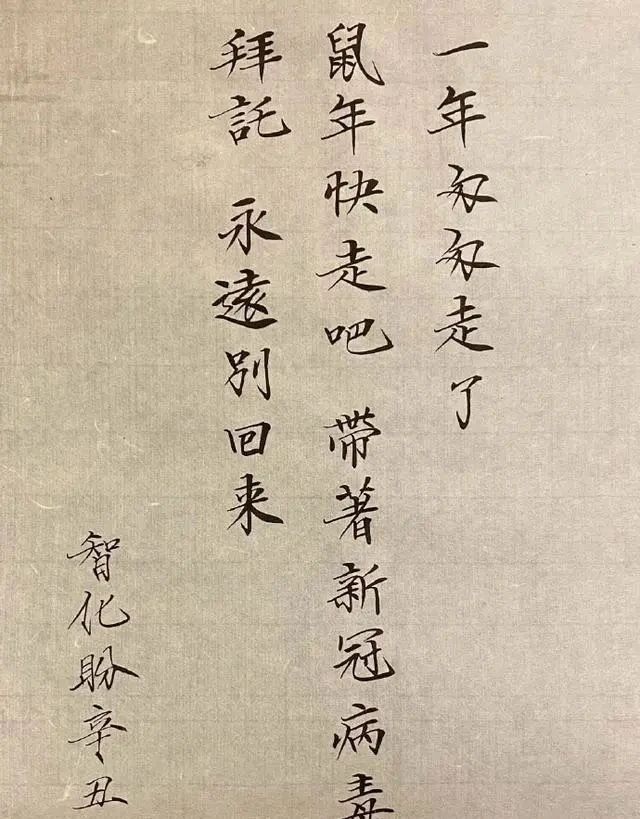 一年匆匆走了
鼠年快走吧 帶著新冠病毒
拜託 永遠別回来
智化盼辛丑